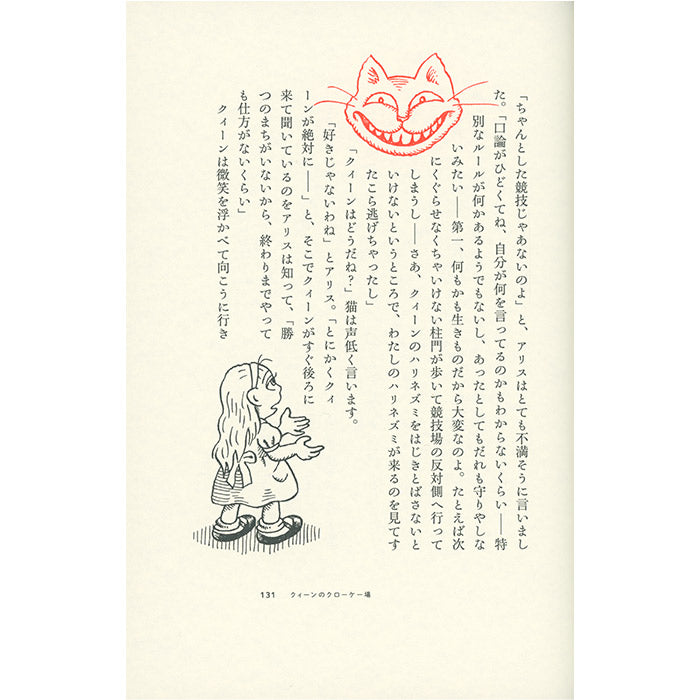 「ちゃんとした競技じゃあないのよ」と、アリスはとても不満そうに言いまし
た。「口論がひどくてね、自分が何を言ってるのかもわからないくらい──特
別なルールが何かあるようでもないし、あったとしてもだれも守りやしな
いみたい──第一、何もかも生きものだから大変なのよ。たとえば次
にくぐらせなくちゃいけない柱門が歩いて競技場の反対側へ行って
しまうし──さあ、クィーンのハリネズミをはじきとばさないと
いけないというところで、わたしのハリネズミが来るのを見てす
たこら逃げちゃったし」
「クィーンはどうだね?」猫は声低く言います。
「好きじゃないわね」とアリス。「とにかくクィ
ーンが絶対に──」と、そこでクィーンがすぐ後ろに
来て聞いているのをアリスは知って、「勝
つのまちがいないから、終わりまでやって
も仕方がないくらい」
クィーンは微笑を浮かべて向こうに行き
131 クィーンのクローケー場